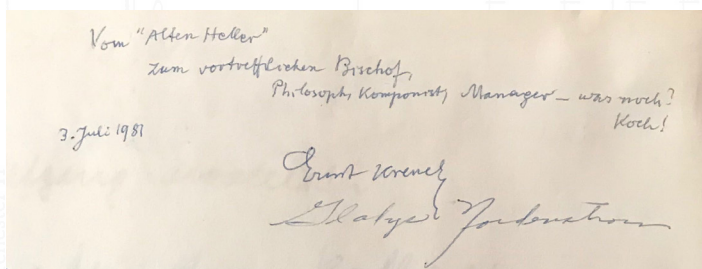 Vom "Alten Heller"
zum vortrefflichen Bischof,
Philosoph, Komponist, Manager – was noch?
Koch!
3. Juli 1981
Ernst Krenek
Gladys Nordenstrom